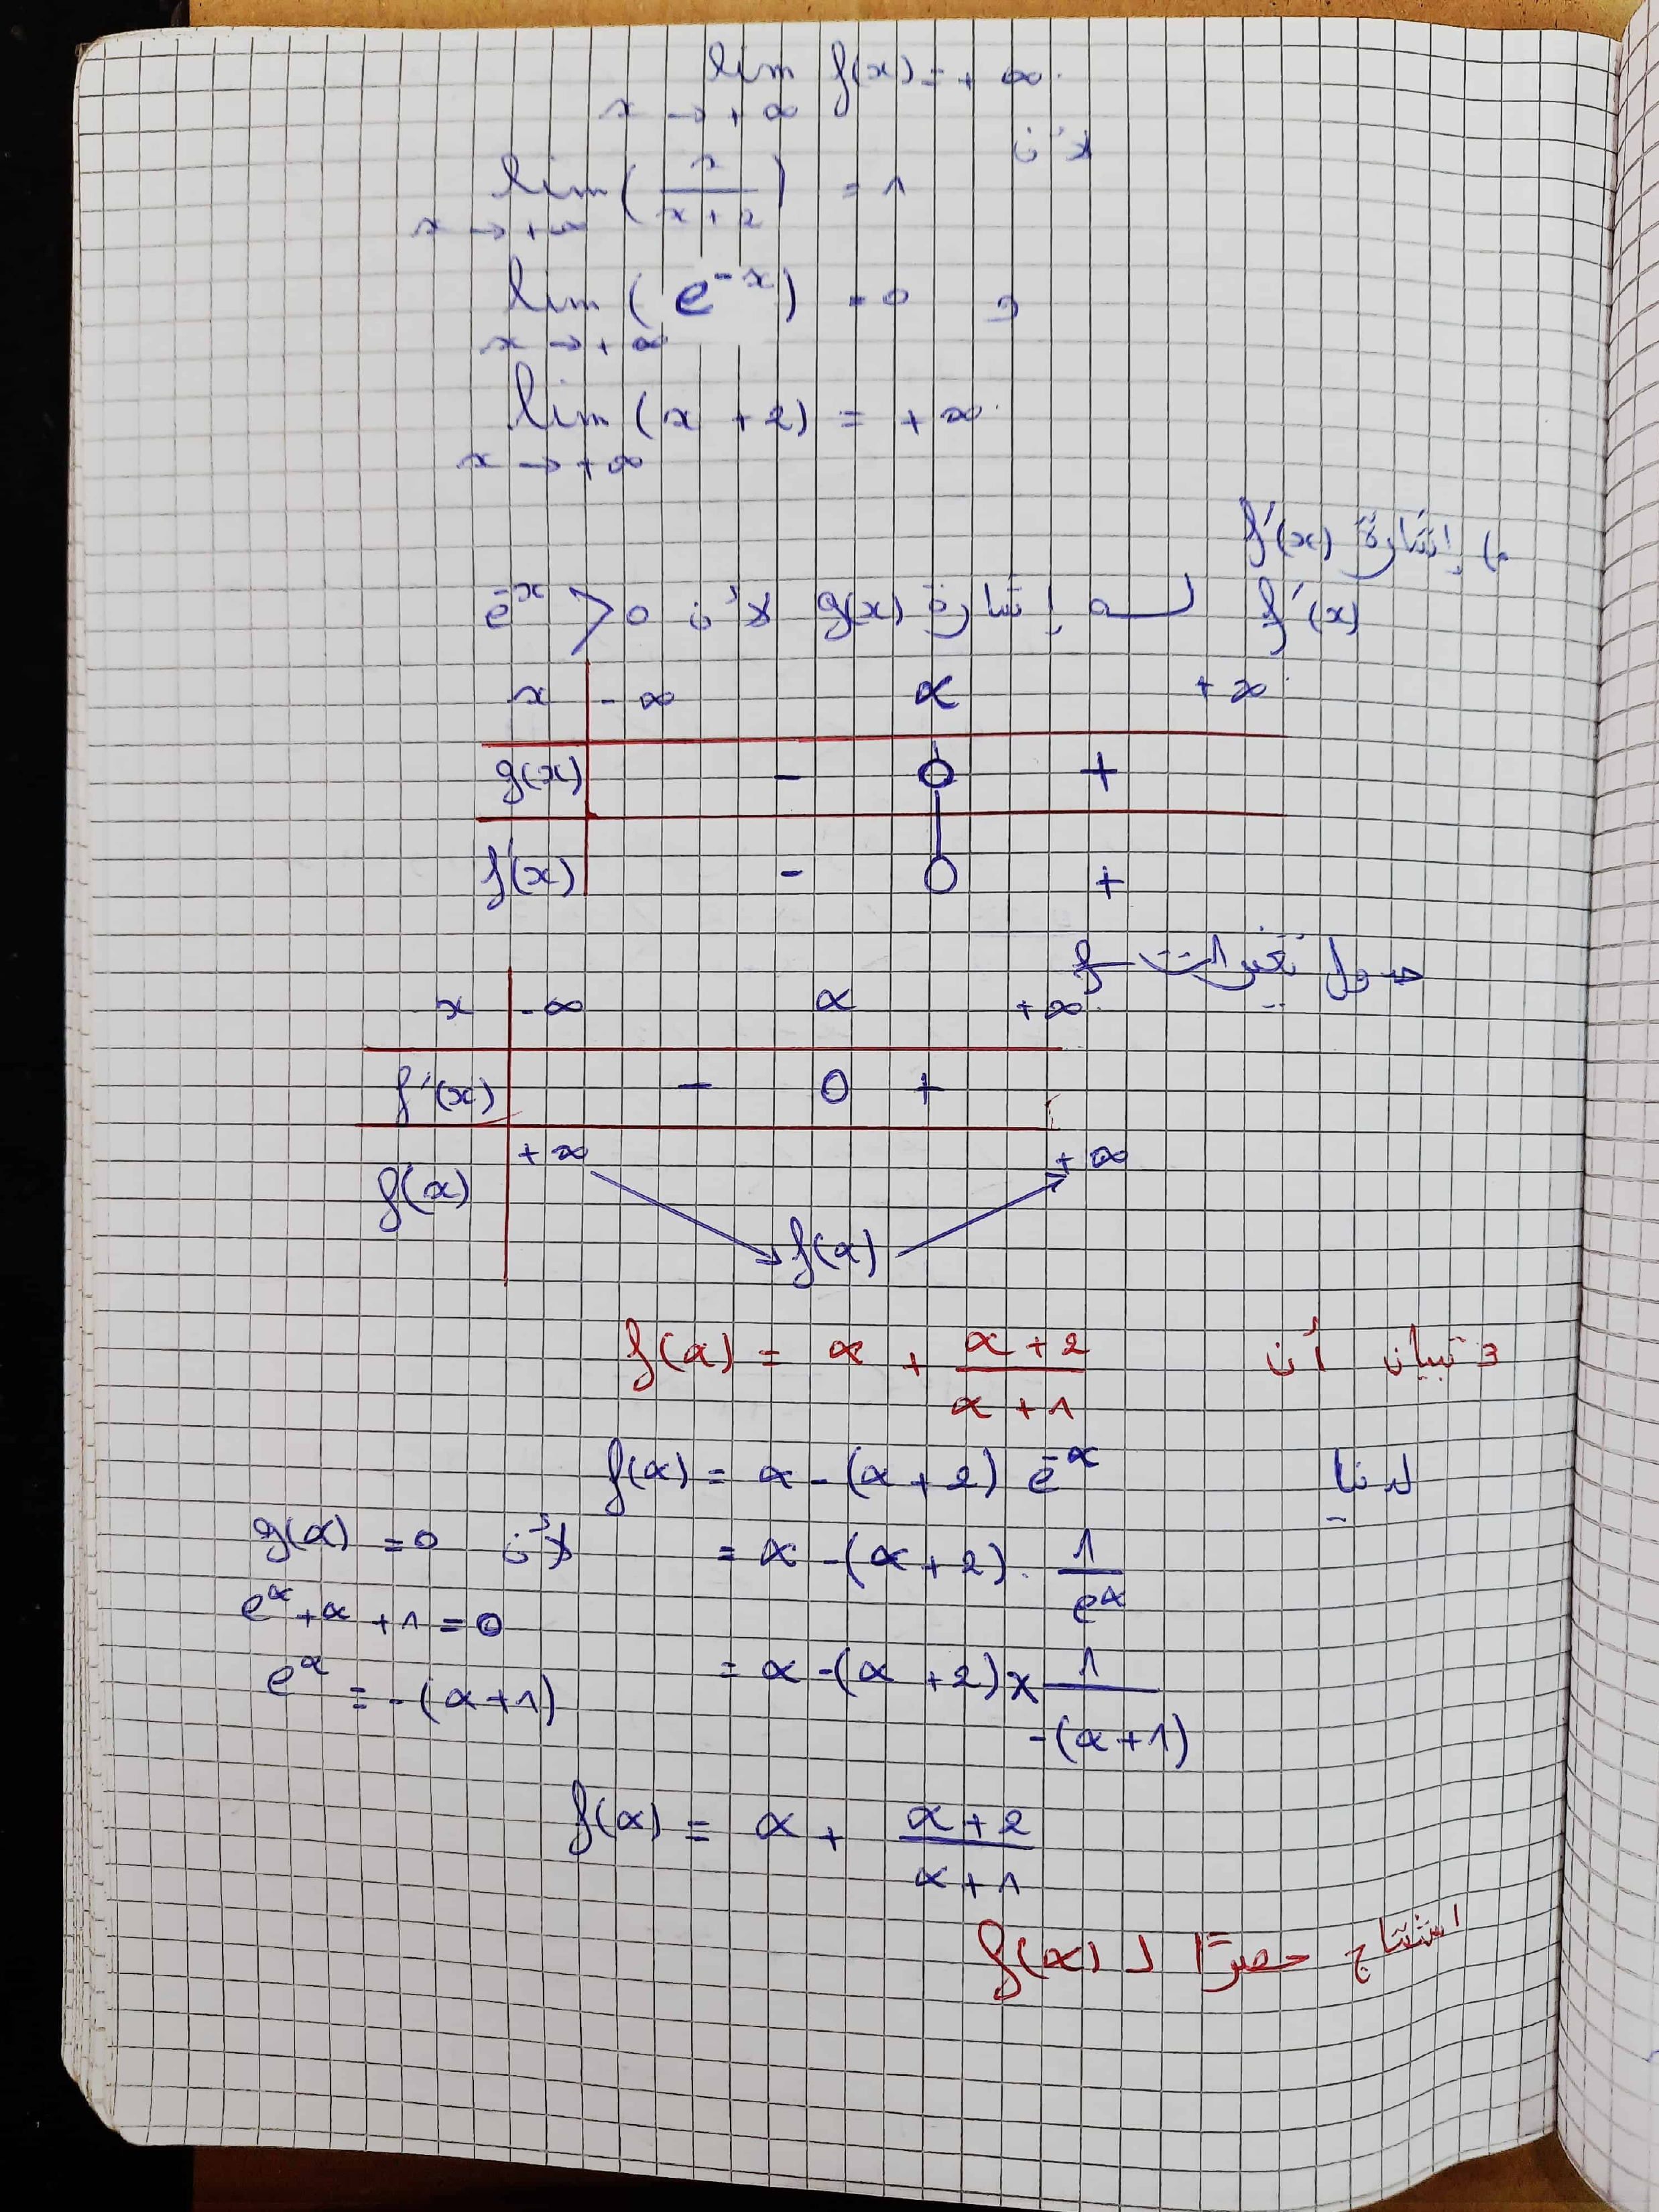 lim f(x) = + ∞
x → + ∞
لأن
lim ( x / x + 2 ) = 1
x → + ∞
lim ( e^-x ) = 0 و
x → + ∞
lim (x + 2) = + ∞
x → + ∞
إشارة f'(x)
f'(x) لــه إشارة g(x) لأن e^-x > 0
x - ∞ α + ∞
g(x) - 0 +
f'(x) - 0 +
جدول تغيرات f
x - ∞ α + ∞
f'(x) - 0 +
f(x) + ∞ f(α) + ∞
3 تبيان أن f(α) = α + (α + 2)/(α + 1)
لدينا f(α) = α - (α + 2) e^-α
= α - (α + 2) . 1/e^α لأن g(α) = 0
e^α + α + 1 = 0
= α - (α + 2) × 1/-(α + 1)
e^α = - (α + 1)
f(α) = α + (α + 2)/(α + 1)
استنتاج حصرًا لـ f(α)